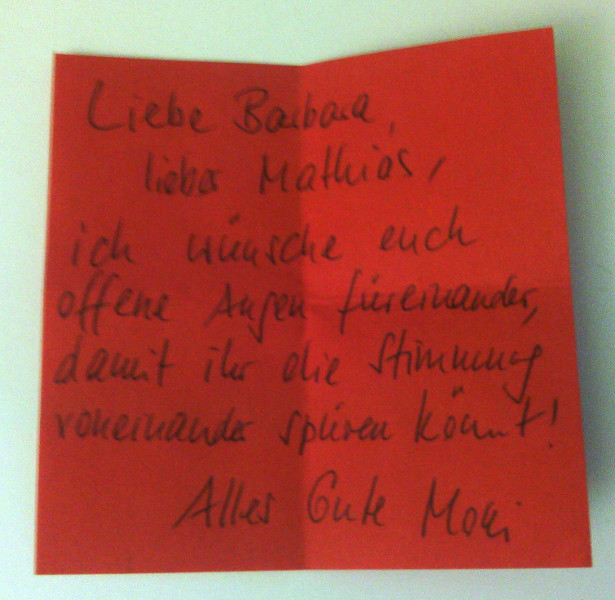 Liebe Barbara,
lieber Mathias,
ich wünsche euch
offene Augen füreinander,
damit ihr die Stimmung
voneinander spüren könnt!
Alles Gute